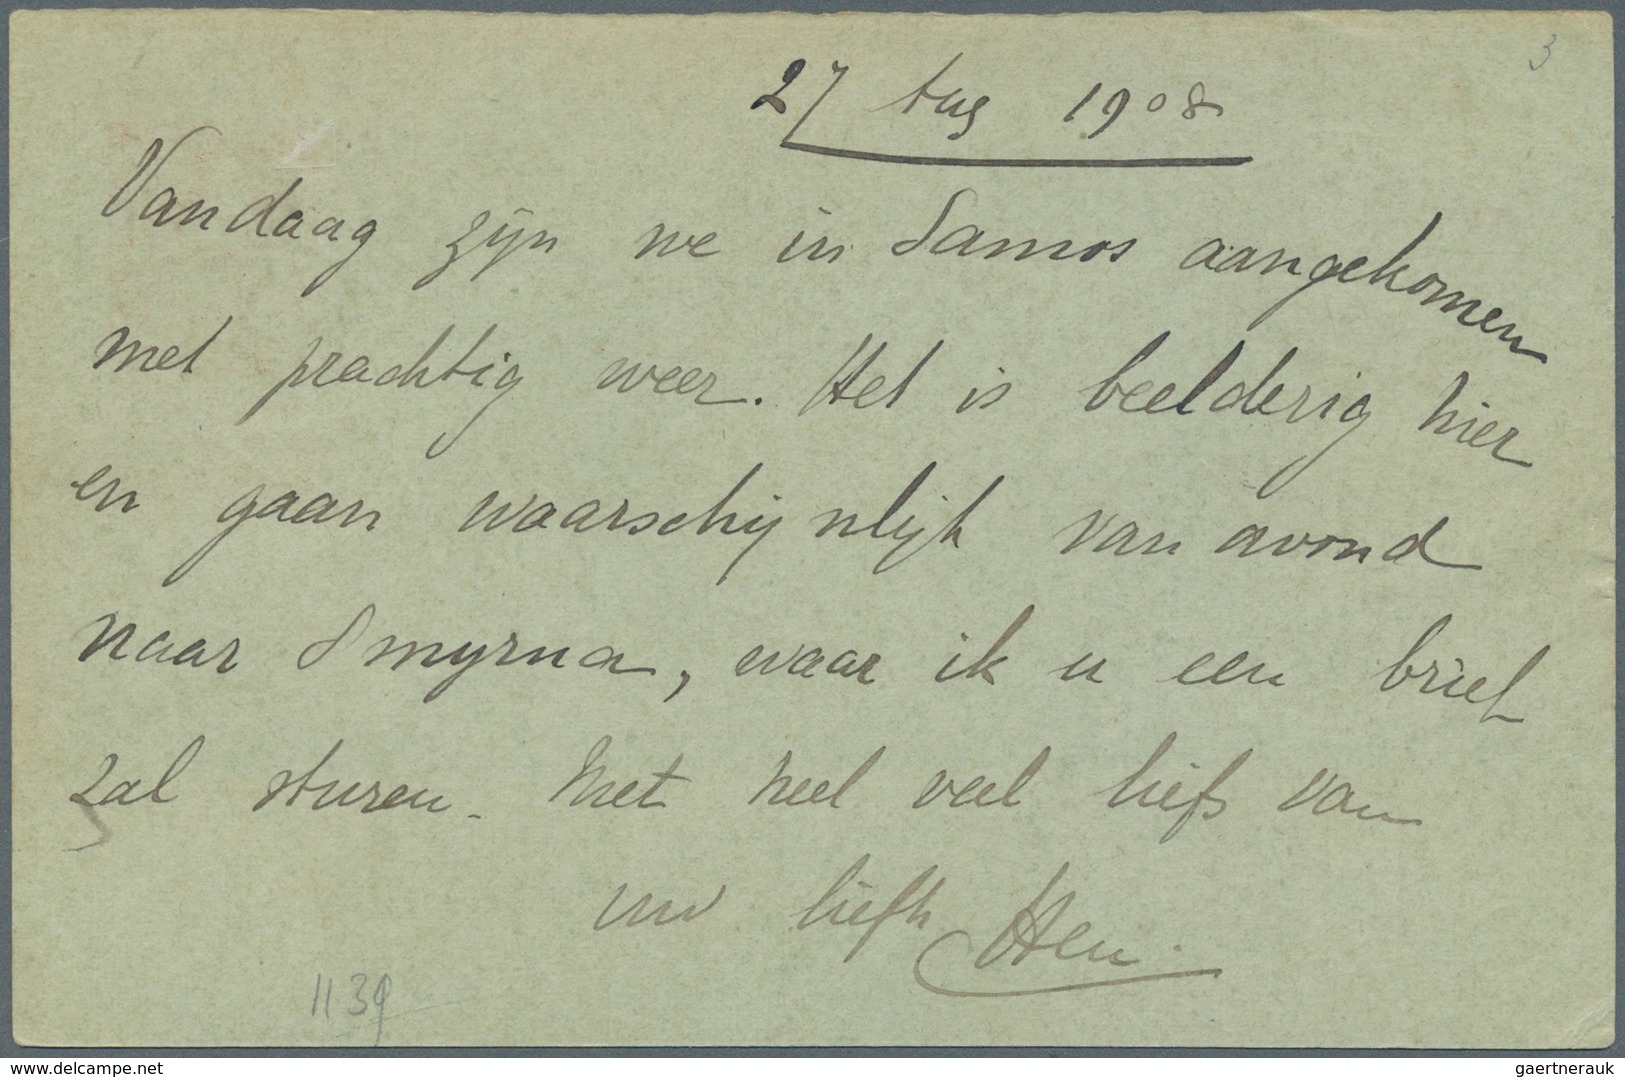 3
27 Aug 1908
Vandaag zijn we in Samos aangekomen
met prachtig weer. Het is beelderig hier
en gaan waarschijnlijk van avond
naar Smyrna, waar ik u een brief
zal sturen. Met heel veel liefs van
uw liefh Hen.
1139
delcampe.net
gaertnerauk